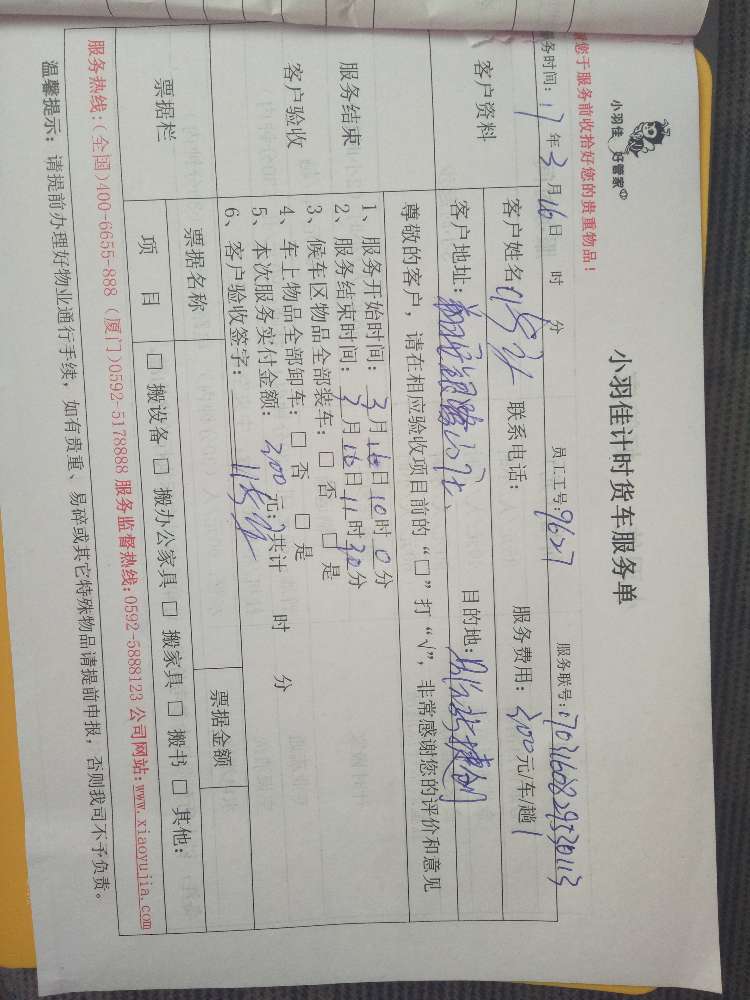 小羽佳 好管家
小羽佳计时货车服务单
您于服务前收拾好您的贵重物品!
务时间: 17 年 3 月 16 日 时 分 员工工号: 9627 服务联号: 1703160829530113
客户资料
客户姓名 联系电话: 服务费用: 200 元/车/趟
客户地址: 目的地:
服务结束
客户验收
尊敬的客户,请在相应验收项目前的“□”打“√”,非常感谢您的评价和意见
1、服务开始时间: 3 月 16 日 10 时 0 分
2、服务结束时间: 3 月 16 日 11 时 30 分
3、候车区物品全部装车: □ 否 □ 是
4、车上物品全部卸车: □ 否 □ 是
5、本次服务实付金额: 200 元;共计 时 分
6、客户验收签字:
票据栏
票据名称 票据金额
项 目 □ 搬设备 □ 搬办公家具 □ 搬家具 □ 搬书 □ 其他:
服务热线:(全国)400-6655-888 (厦门)0592-5178888 服务监督热线:0592-5888123 公司网站:www.xiaoyujia.com
温馨提示: 请提前办理好物业通行手续,如有贵重、易碎或其它特殊物品请提前申报,否则我司不予负责。